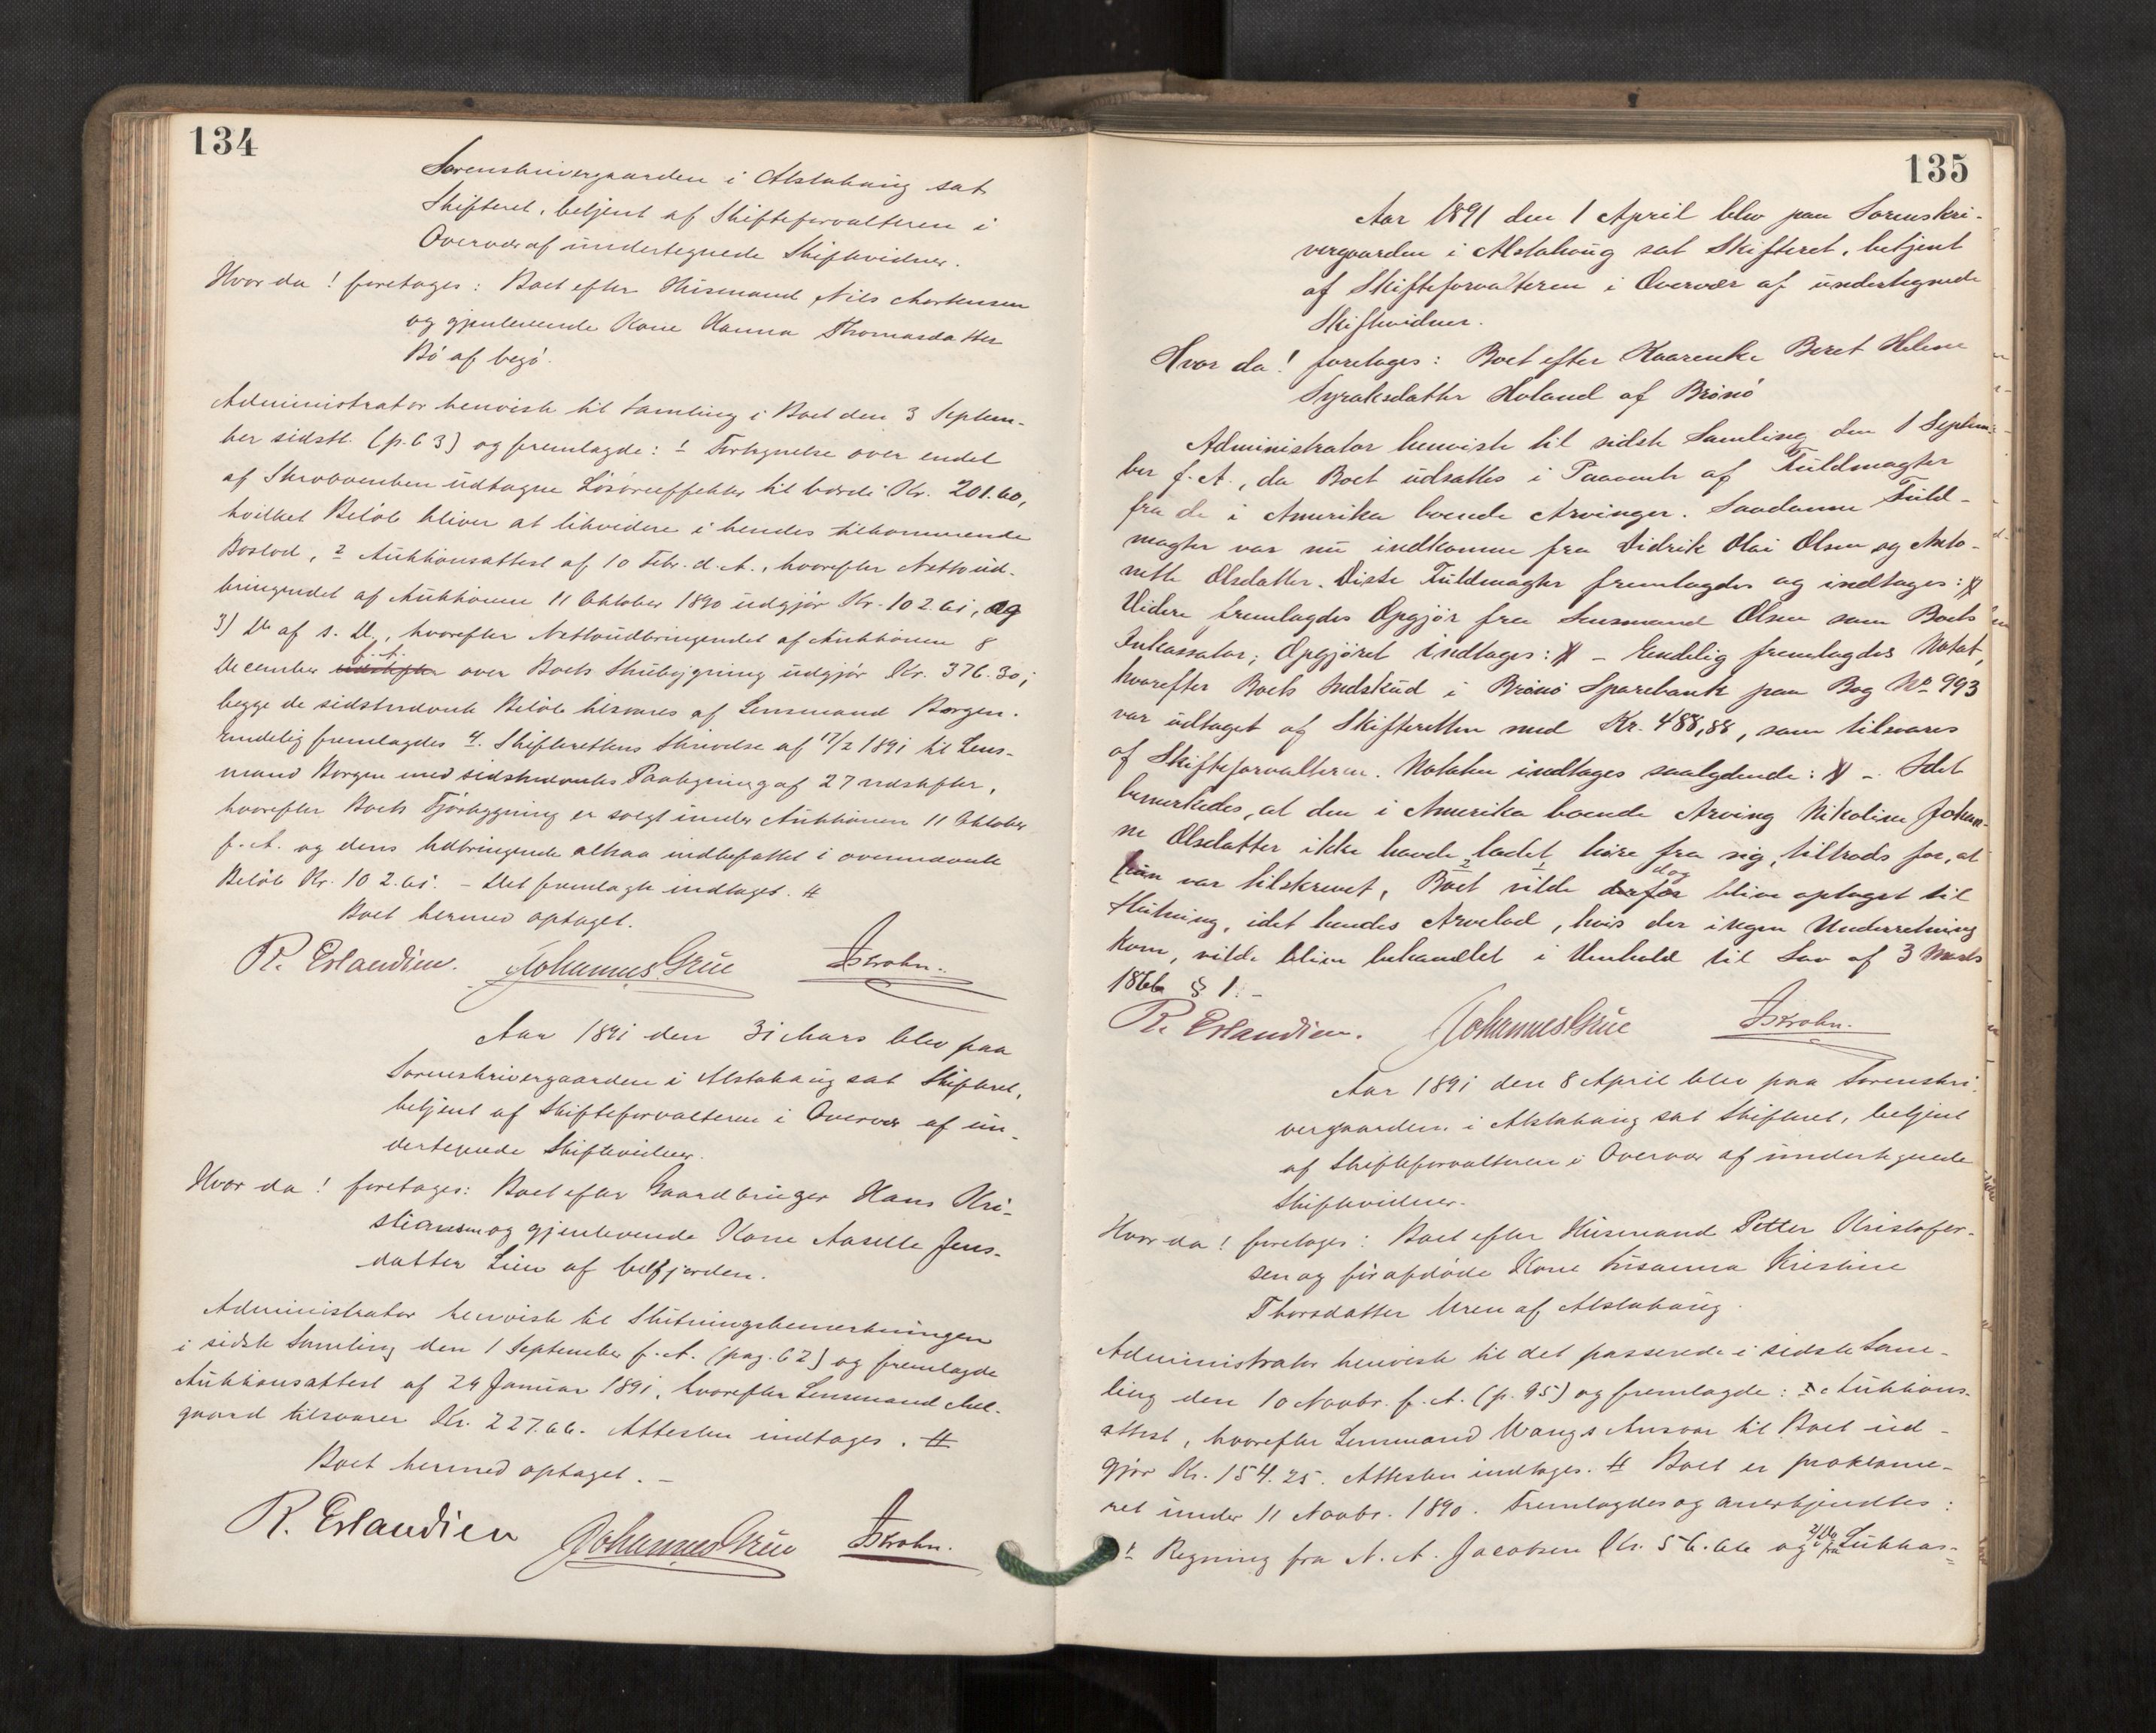 134
Sorenskrivergaarden i Alstahaug sat
Skifteret, betjent af Skifteforvalteren i
Overvær af undertegnede Skiftevidner.
Hvor da! foretages: Boet efter Husmand Nils Mortensen
og gjenlevende Kone Hanna Thomasdatter
Bø af Vegø.
Administrator henviste til Samling i Boet den 3 Septem-
ber sidstl. (p. 63) og fremlagde: 1 Fortegnelse over endel
af Skraboenken udtagne Løsøreeffekter til Værdi Kr. 201.60,
hvilket Beløb bliver at likvidere i hendes tilkommende
Boslod, 2 Auktionsattest af 10 Febr. d. A., hvorefter Nettoud-
bringendet af Auktionen 11 Oktober 1890 udgjør Kr. 102.61, og
3) Do af s. D., hvorefter Nettoudbringendet af Auktionen 8
December f. A. over Boets Stubygning udgjør Kr. 376.30;
begge de sidstnævnte Beløb tilsvares af Lensmand Borgen.
Endelig fremlagdes 4. Skifterettens Skrivelse af 17/2 1891 til Lens-
mand Borgen med sidstnævntes Paategning af 27 næstefter,
hvorefter Boets Fjøsbygning er solgt under Auktionen 11 Oktober
f. A. og dens Udbringende altsaa indbefattet i ovennævnte
Beløb Kr. 102.61. – Det fremlagte indtages. #
Boet hermed optaget.
R. Erlandsen. Johannes Grüe
Aar 1891 den 31 Mars blev paa
Sorenskrivergaarden i Alstahaug sat Skifteret,
betjent af Skifteforvalteren i Overvær af un-
dertegnede Skiftevidner.
Hvor da! foretages: Boet efter Gaardbruger Hans Kri-
stiansen og gjenlevende Kone Aaselle Jens-
datter Lien af Velfjorden.
Administrator henviste til Slutningsbemerkningen
i sidste Samling den 1 September f. A. (pag. 62) og fremlagde
Auktionsattest af 29 Januar 1891, hvorefter Lensmand Mel-
gaard tilsvarer Kr. 227.66. Attesten indtages. #
Boet hermed optaget. –
R. Erlandsen Johannes Grüe
135
Aar 1891 den 1 April blev paa Sorenskri-
vergaarden i Alstahaug sat Skifteret, betjent
af Skifteforvalteren i Overvær af undertegnede
Skiftevidner.
Hvor da! foretages: Boet efter Kaarenke Beret Helene
Syraksdatter Holand af Brønø
Administrator henviste til sidste Samling den 1 Septem-
ber f. A., da Boet udsattes i Paavente af Fuldmagter
fra de i Amerika boende Arvinger. Saadanne Fuld-
magter var nu indkomne fra Didrik Olai Olsen og Anto-
nette Olsdatter. Disse Fuldmagter fremlagdes og indtages: #
Videre fremlagdes Opgjør fra Lensmand Olsen som Boets
Inkassator; Opgjøret indtages: # – Endelig fremlagdes Notat,
hvorefter Boets Indskud i Brønø Sparebank paa Bog No 993
var udtaget af Skifteretten med Kr. 488,88, som tilsvares
af Skifteforvalteren. Notaten indtages saalydende: # – Idet
bemerkedes, at den i Amerika boende Arving Nikoline Johan-
ne Olsdatter ikke havde ladet høre fra sig, tiltrods for, at
hun var tilskrevet, Boet vilde dog blive optaget til
Slutning, idet hendes Arvelod, hvis der ingen Underretning
kom, vilde blive behandlet i Henhold til Lov af 3 Marts
1866 § 1. –
R. Erlandsen. Johannes Grüe
Aar 1891 den 8 April blev paa Sorenskri-
vergaarden i Alstahaug sat Skifteret, betjent
af Skifteforvalteren i Overvær af undertegnede
Skiftevidner.
Hvor da! foretages: Boet efter Husmand Petter Kristofer-
sen og før afdøde Kone Susanna Kristine
Thorsdatter Uren af Alstahaug.
Administrator henviste til det passerede i sidste Sam-
ling den 10 Novbr. f. A. (p. 95) og fremlagde: Auktions-
attest, hvorefter Lensmand Wangs Ansvar til Boet ud-
gjør Kr. 154.25. Attesten indtages. # Boet er proklame-
ret under 11 Novbr. 1890. Fremlagdes og anerkjendtes:
1 Regning fra N. A. Jacobsen Kr. 56.66 og 2/ Do fra